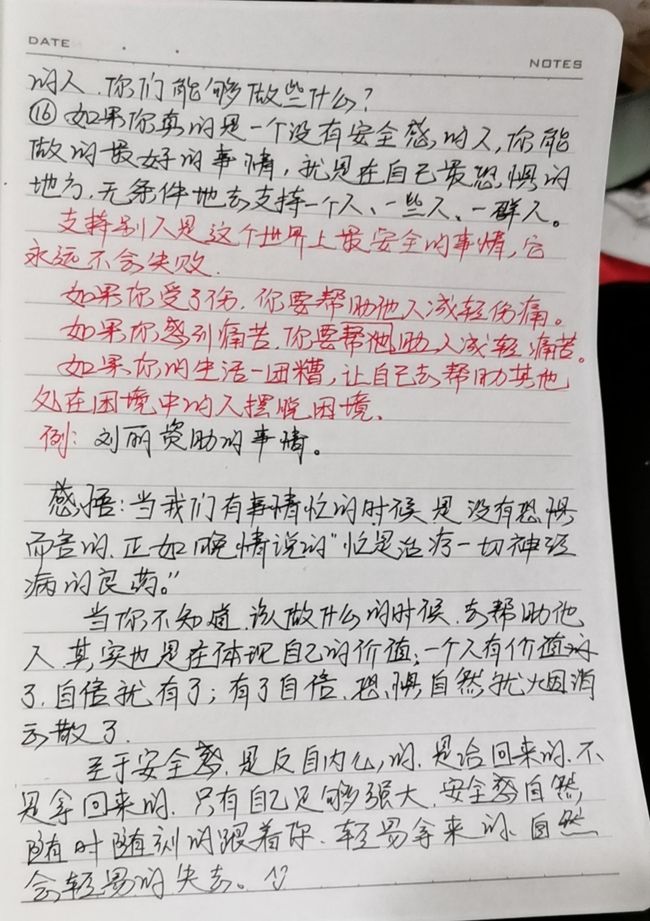 DATE
NOTES
的人.你们能够做些什么?
⑯ 如果你真的是一个没有安全感,的人,你能
做的最好的事情,就是在自己最恐惧的
地方,无条件地去支持一个人、一些人、一群人。
支持别人是这个世界上最安全的事情,它
永远不会失败.
如果你受了伤,你要帮助他人减轻伤痛。
如果你感到痛苦,你要帮他助人减轻痛苦。
如果你的生活一团糟,让自己去帮助其他
处在困境中的人摆脱困境.
例: 刘丽资助的事情。
感悟:当我们有事情忙的时候是没有恐惧
而言的.正如晚情说的"忙是治疗一切神经
病的良药。"
当你不知道该做什么的时候.去帮助他
人其实也是在体现自己的价值;一个人有价值
了.自信就有了;有了自信.恐惧自然就烟消
云散了.
至于安全感,是反自内心的,是给回来的.不
是拿回来的.只有自己足够强大.安全感自然,
随时随刻的跟着你.轻易拿来的.自然
会轻易的失去。